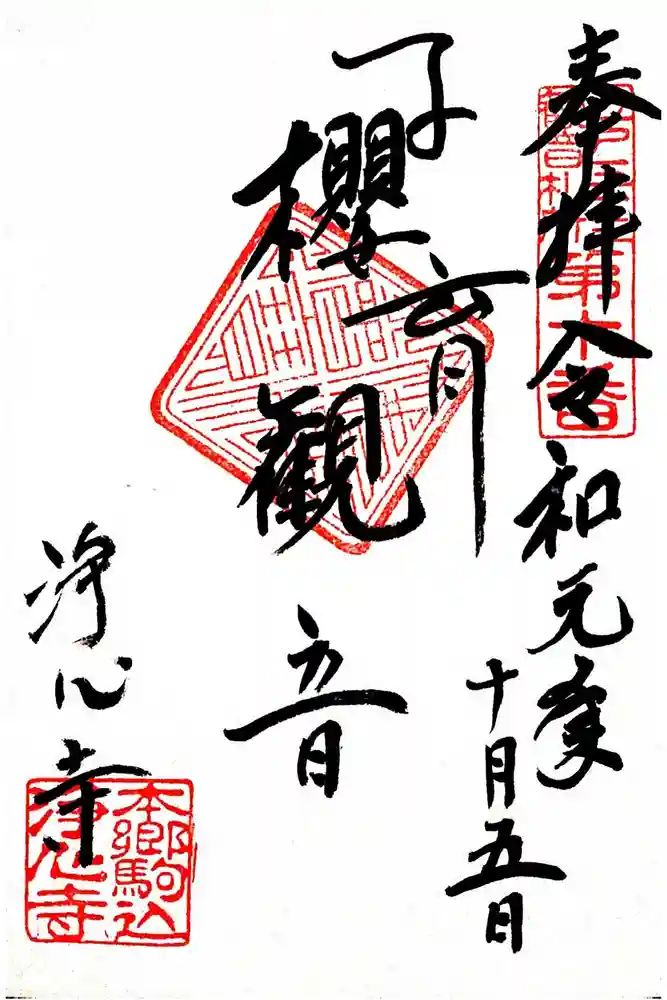 奉拝
令和元年
十月五日
子育
櫻觀音
浄心寺
第十番
本郷駒込
浄心寺